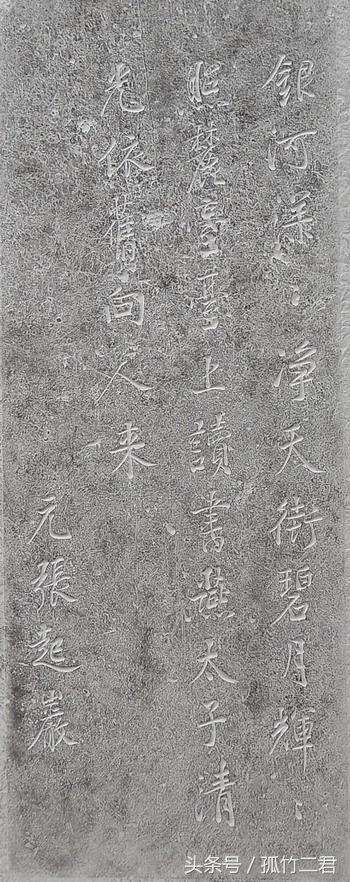 銀河漾〻淨天街碧月輝〻
照麓臺臺上讀書蕭太子清
光依舊向人来
元張起巖
头条号 / 孤竹二君